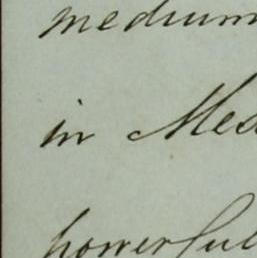 medium
in Mes
powerful